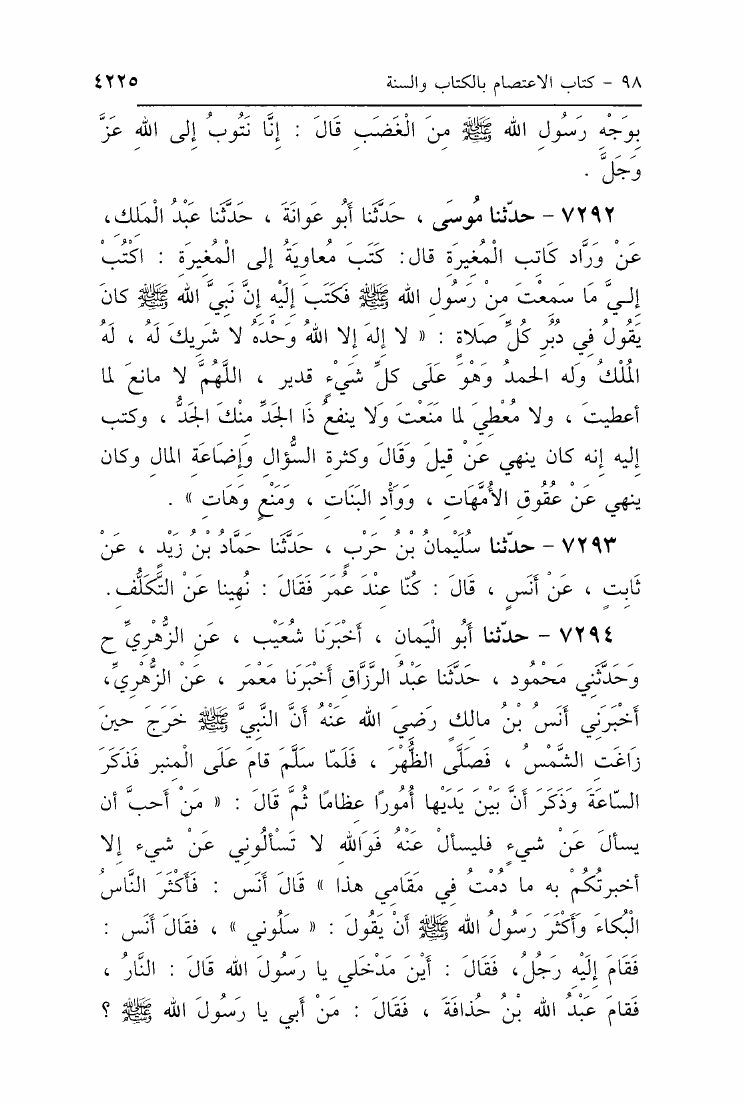 ٩٨ - كتاب الاعتصام بالكتاب والسنة ٤٢٢٥
بِوَجْهِ رَسُولِ الله ﷺ مِنَ الْغَضَبِ قَالَ : إِنَّا نَتُوبُ إِلى الله عَزَّ
وَجَلَّ .
٧٢٩٢ - حدّثنا مُوسَى ، حَدَّثَنا أَبُو عَوَانَةَ ، حَدَّثَنا عَبْدُ الْمَلِكِ،
عَنْ وَرَّاد كَاتِبِ الْمُغيرَةِ قال: كَتَبَ مُعاوِيَةُ إلى الْمُغِيرَةِ : اكْتُبْ
إلـيَّ مَا سَمِعْتَ مِنْ رَسُولِ الله ﷺ فَكَتَبَ إِلَيْهِ إِنَّ نَبِيَّ الله ﷺ كانَ
يَقُولُ فِي دُبُرِ كُلِّ صَلاةٍ : « لا إلهَ إلا اللهُ وَحْدَهُ لا شَرِيكَ لَهُ ، لَهُ
الْمُلْكُ وله الحمدُ وَهْوَ عَلَى كلِّ شَيْءٍ قدير ، اللَّهُمَّ لا مانعَ لما
أعطيتَ ، ولا مُعْطِيَ لما مَنَعْتَ وَلا ينفعُ ذَا الجَدِّ مِنْكَ الجَدُّ ، وكتب
إليه إنه كان ينهي عَنْ قِيلَ وَقَالَ وكثرةِ السُّؤالِ وَإِضَاعَةِ المالِ وكان
ينهي عَنْ عُقُوقِ الأُمَّهَاتِ ، وَوَأْدِ البَنَاتِ ، وَمَنْعٍ وَهَاتِ » .
٧٢٩٣ - حدّثنا سُلَيْمانُ بْنُ حَرْبٍ ، حَدَّثَنا حَمَّادُ بْنُ زَيْدٍ ، عَنْ
ثَابِتٍ ، عَنْ أَنَسٍ ، قَالَ : كُنّا عِنْدَ عُمَرَ فَقَالَ : نُهِينا عَنْ التَّكَلُّفِ.
٧٢٩٤ - حدّثنا أَبُو الْيَمانِ ، أَخْبَرَنا شُعَيْب ، عَنِ الزُّهْرِيِّ ح
وَحَدَّثَنِي مَحْمُود ، حَدَّثَنا عَبْدُ الرَّزَّاقِ أَخْبَرَنا مَعْمَر ، عَنْ الزُّهْرِيِّ،
أَخْبَرَنِي أَنَسُ بْنُ مالِكٍ رَضِيَ الله عَنْهُ أَنَّ النَّبِيَّ ﷺ خَرَجَ حينَ
زَاغَتِ الشَّمْسُ ، فَصَلَّى الظُّهْرَ ، فَلَمّا سَلَّمَ قامَ عَلَى الْمِنبرِ فَذَكَرَ
السّاعَةَ وَذَكَرَ أَنَّ بَيْنَ يَدَيْها أُمُورًا عِظامًا ثُمَّ قَالَ : « مَنْ أحبَّ أن
يسألَ عَنْ شيءٍ فليسألْ عَنْهُ فَوَاللهِ لا تَسْألُونِي عَنْ شيء إلا
أخبرتُكُمْ به ما دُمْتُ فِي مَقَامِي هذا » قالَ أَنَس : فَأَكْثَرَ النَّاسُ
الْبُكاءَ وَأَكْثَرَ رَسُولُ الله ﷺ أَنْ يَقُولَ : « سَلُوني » ، فقالَ أَنَس :
فَقَامَ إِلَيْهِ رَجُلُ، فَقَالَ : أَيْنَ مَدْخَلي يا رَسُولَ الله قَالَ : النَّارُ ،
فَقامَ عَبْدُ الله بْنُ حُذافَةَ ، فَقَالَ : مَنْ أَبي يا رَسُولَ الله ﷺ ؟